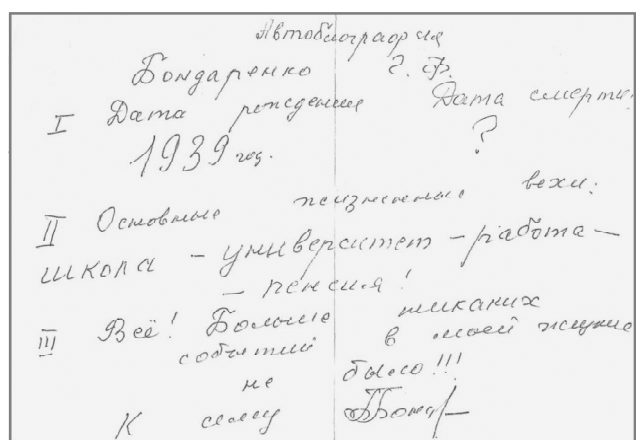 Автобиография
Бондаренко Г. Ф.
I Дата рождения Дата смерти:
1939 год. ?
II Основные жизненные вехи:
школа - университет - работа -
- пенсия!
III Всё! Больше никаких
событий в моей жизни
не было!!!
К сему